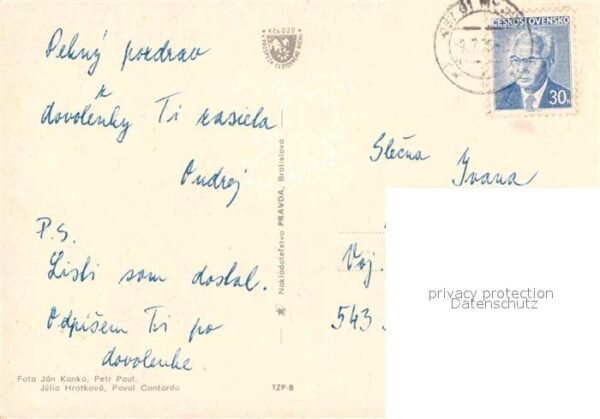 Pekný pozdrav
z
dovolenky Ti zasiela
Ondrej
P.S.
Listi som dostal.
Odpíšem Ti po
dovolenke.
Foto Ján Kanka, Petr Paul,
Júlia Hrotková, Pavol Contordo
TZP-B
Nakladateľstvo PRAVDA, Bratislava
Kčs 0,20
ČESKOSLOVENSKO
30h
Slečna
Ivana
Voj.
543
privacy protection
Datenschutz